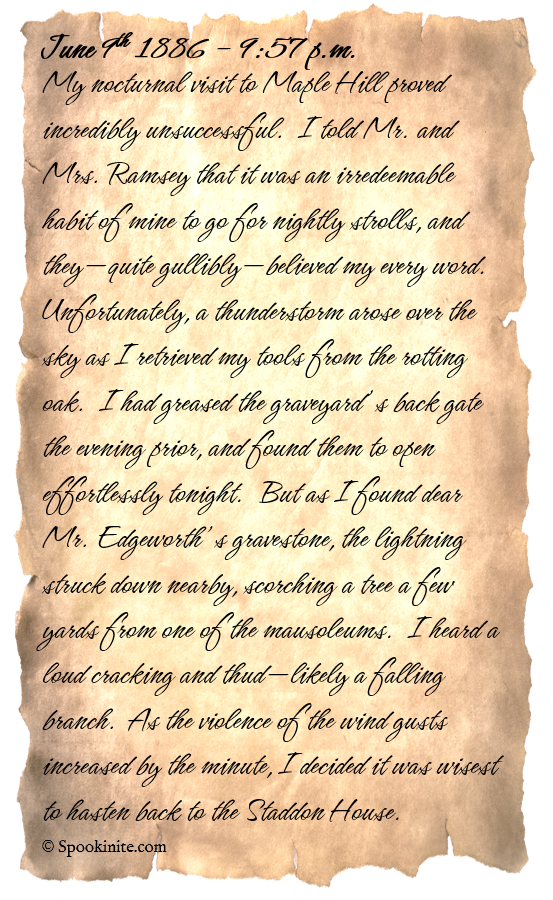 June 9th 1886 – 9:57 p.m.
My nocturnal visit to Maple Hill proved
incredibly unsuccessful. I told Mr. and
Mrs. Ramsey that it was an irredeemable
habit of mine to go for nightly strolls, and
they—quite gullibly—believed my every word.
Unfortunately, a thunderstorm arose over the
sky as I retrieved my tools from the rotting
oak. I had greased the graveyard's back gate
the evening prior, and found them to open
effortlessly tonight. But as I found dear
Mr. Edgeworth's gravestone, the lightning
struck down nearby, scorching a tree a few
yards from one of the mausoleums. I heard a
loud cracking and thud—likely a falling
branch. As the violence of the wind gusts
increased by the minute, I decided it was wisest
to hasten back to the Staddon House.
© Spookinite.com